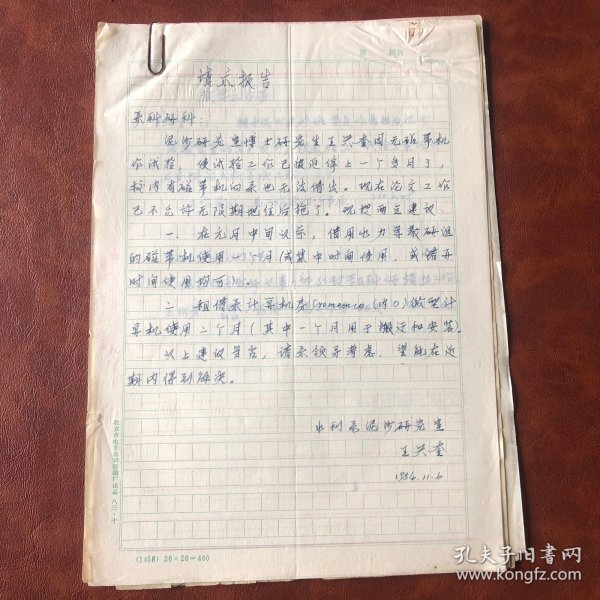 请示报告
系科研科:
泥沙研究室博士研究生王兴奎因无磁带机
作试验,使试验工作已被迫停止一个多月了,
校内有磁带机的系也无法借出。现在论文工作
已不允许无限期地往后拖了。现提两点建议
一、在元月中旬以前,借用水力学教研组
的磁带机使用一个月(或集中时间使用,或错开
时间使用均可)。
二、租借系计算机房Cromemco(
)微型计
算机使用二个月(其中一个月用于搬迁和安装。
以上建议妥否,请系领导考虑,望能在近
期内得到解决。
水利系泥沙研究室
王兴奎
1984.11.6
北京市电车公司印刷厂出品 八三·十
(1458) 20×20=400
孔夫子旧书网
www.kongfz.com